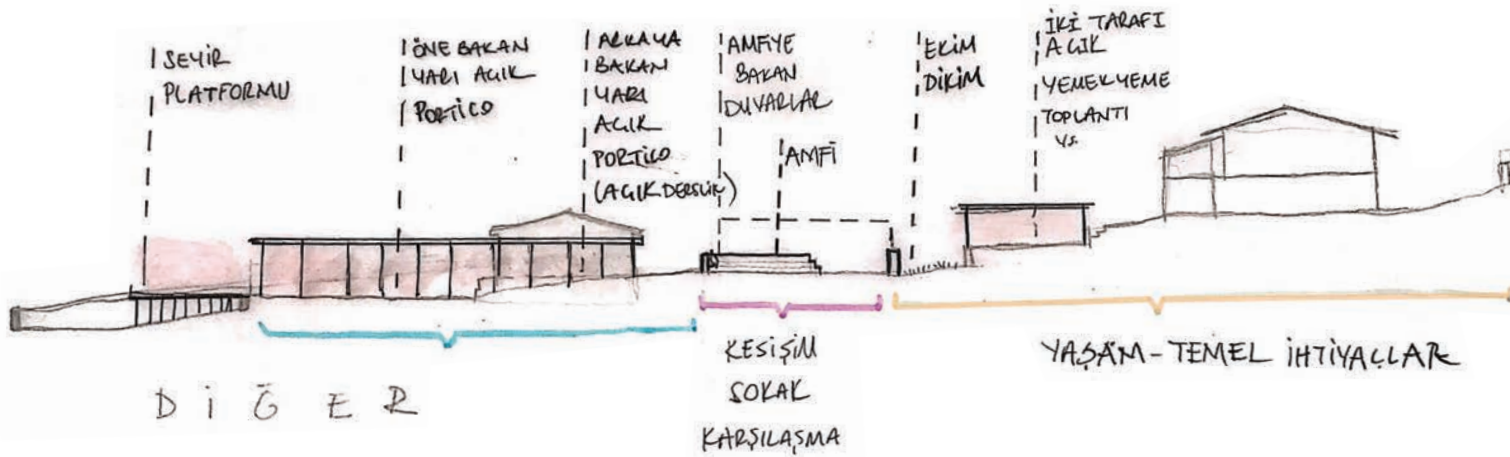 SEYİR
PLATFORMU
ÖNE BAKAN
YARI AÇIK
PORTİCO
ARKAYA
BAKAN
YARI
AÇIK
PORTİCO
(AÇIK DERSLİK)
AMFİYE
BAKAN
DUVARLAR
AMFİ
EKİM
DİKİM
İKİ TARAFI
AÇIK
YEMEK YEME
TOPLANTI
vs.
DİĞER
KESİŞİM
SOKAK
KARŞILAŞMA
YAŞAM-TEMEL İHTİYAÇLAR